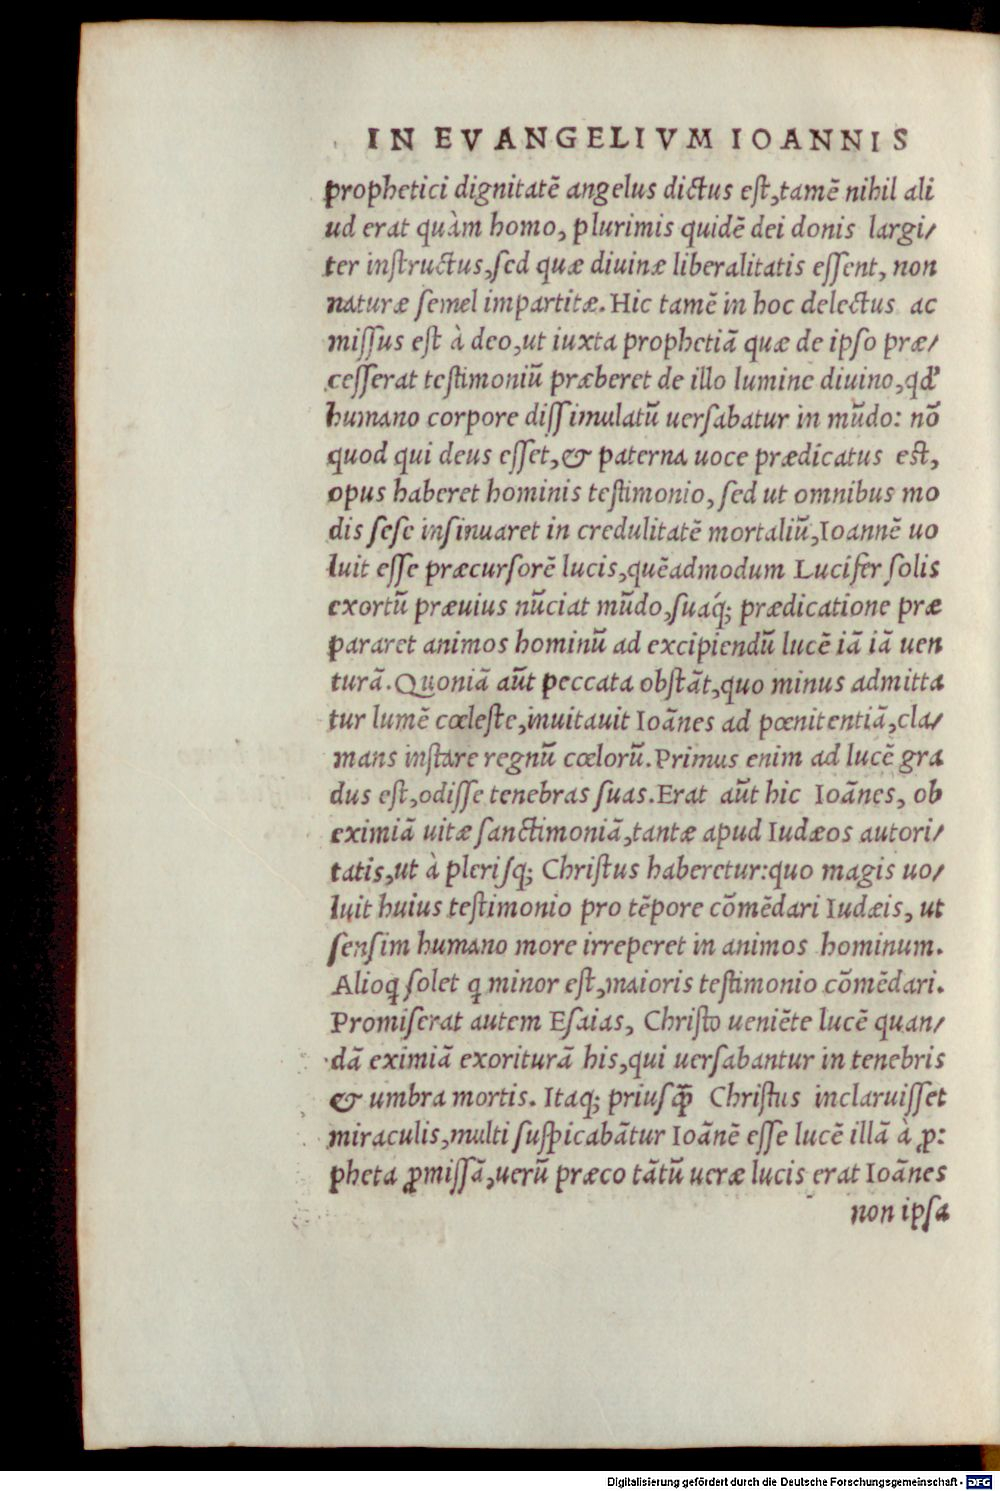 IN EVANGELIVM IOANNIS
prophetici dignitatē angelus dictus est, tamē nihil ali
ud erat quàm homo, plurimis quidē dei donis largi/
ter instructus, sed quæ diuinæ liberalitatis essent, non
naturæ semel impartitæ. Hic tamē in hoc delectus ac
missus est à deo, ut iuxta prophetiā quæ de ipso præ/
cesserat testimoniū præberet de illo lumine diuino, qđ
humano corpore dissimulatū uersabatur in mūdo: nō
quod qui deus esset, & paterna uoce prædicatus est,
opus haberet hominis testimonio, sed ut omnibus mo
dis sese insinuaret in credulitatē mortaliū, Ioannē uo
luit esse præcursorē lucis, quēadmodum Lucifer solis
exortū præuius nūciat mūdo, suaq́; prædicatione præ
pararet animos hominū ad excipiendū lucē iā iā uen
turā. Quoniā aūt peccata obstāt, quo minus admitta
tur lumē cœleste, inuitauit Ioānes ad pœnitentiā, cla/
mans instare regnū cœlorū. Primus enim ad lucē gra
dus est, odisse tenebras suas. Erat aūt hic Ioānes, ob
eximiā uitæ sanctimoniā, tantæ apud Iudæos autori/
tatis, ut à plerisq; Christus haberetur: quo magis uo/
luit huius testimonio pro tēpore cōmēdari Iudæis, ut
sensim humano more irreperet in animos hominum.
Alioq solet q minor est, maioris testimonio cōmēdari.
Promiserat autem Esaias, Christo ueniēte lucē quan/
dā eximiā exoriturā his, qui uersabantur in tenebris
& umbra mortis. Itaq; priusꝗ̄ Christus inclaruisset
miraculis, multi suspicabātur Ioānē esse lucē illā à ꝓ:
pheta ꝓmissā, uerū præco tātū ueræ lucis erat Ioānes
non ipsa
Digitalisierung gefördert durch die Deutsche Forschungsgemeinschaft - DFG